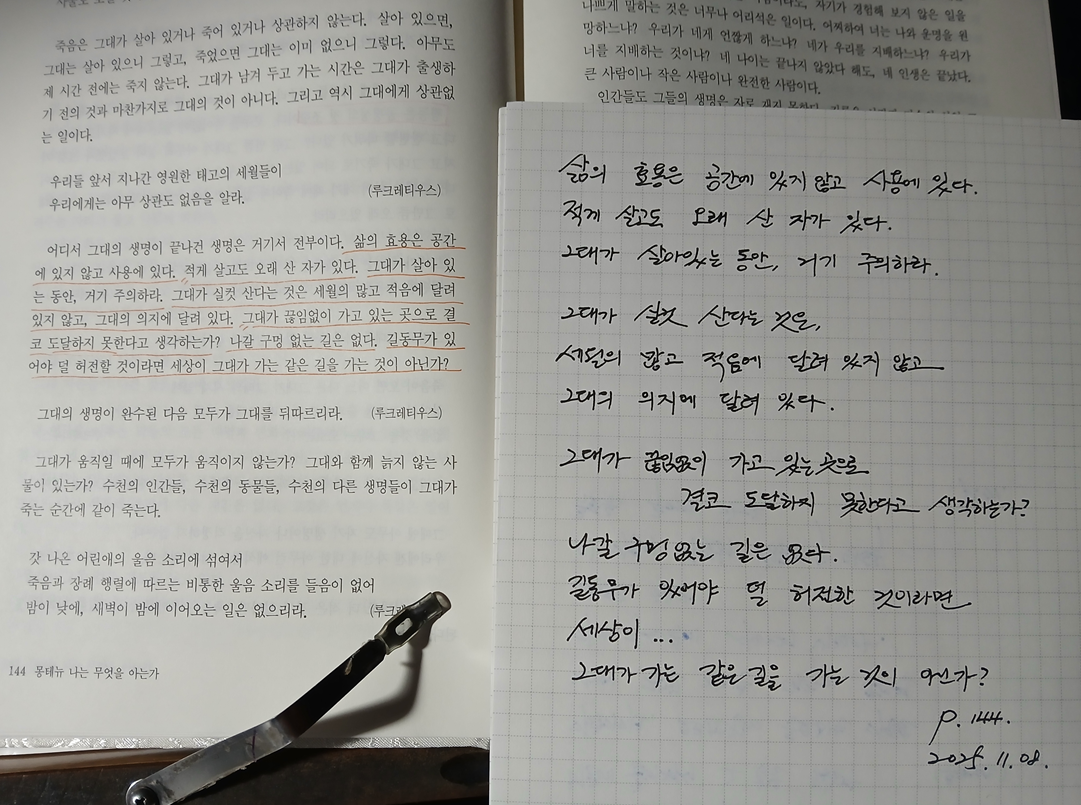 죽음은 그대가 살아 있거나 죽어 있거나 상관하지 않는다. 살아 있으면,
그대는 살아 있으니 그렇고, 죽었으면 그대는 이미 없으니 그렇다. 아무도
제 시간 전에는 죽지 않는다. 그대가 남겨 두고 가는 시간은 그대가 출생하
기 전의 것과 마찬가지로 그대의 것이 아니다. 그리고 역시 그대에게 상관없
는 일이다.
우리들 앞서 지나간 영원한 태고의 세월들이
우리에게는 아무 상관도 없음을 알라.
(루크레티우스)
어디서 그대의 생명이 끝나건 생명은 거기서 전부이다. 삶의 효용은 공간
에 있지 않고 사용에 있다. 적게 살고도 오래 산 자가 있다. 그대가 살아 있
는 동안, 거기 주의하라. 그대가 실컷 산다는 것은 세월의 많고 적음에 달려
있지 않고, 그대의 의지에 달려 있다. 그대가 끊임없이 가고 있는 곳으로 결
코 도달하지 못한다고 생각하는가? 나갈 구멍 없는 길은 없다. 길동무가 있
어야 덜 허전할 것이라면 세상이 그대가 가는 같은 길을 가는 것이 아닌가?
그대의 생명이 완수된 다음 모두가 그대를 뒤따르리라. (루크레티우스)
그대가 움직일 때에 모두가 움직이지 않는가? 그대와 함께 늙지 않는 사
물이 있는가? 수천의 인간들, 수천의 동물들, 수천의 다른 생명들이 그대가
죽는 순간에 같이 죽는다.
갓 나온 어린애의 울음 소리에 섞여서
죽음과 장례 행렬에 따르는 비통한 울음 소리를 들음이 없어
밤이 낮에, 새벽이 밤에 이어오는 일은 없으리라.
(루크레
144 몽테뉴 나는 무엇을 아는가
나쁘게 말하는 것은 너무나 어리석은 일이다. 어찌하여 너는 나와 운명을 원
망하느냐? 우리가 네게 언짢게 하느냐? 네가 우리를 지배하느냐? 우리가
너를 지배하는 것이냐? 네 나이는 끝나지 않았다 해도, 네 인생은 끝났다.
큰 사람이나 작은 사람이나 완전한 사람이다.
인간들도 그들의 생명은 자로 재지 못한다.
삶의 효용은 공간에 있지 않고 사용에 있다.
적게 살고도 오래 산 자가 있다.
그대가 살아있는 동안, 거기 주의하라.
그대가 실컷 산다는 것은,
세월의 많고 적음에 달려 있지 않고
그대의 의지에 달려 있다.
그대가 끊임없이 가고 있는 곳으로
결코 도달하지 못한다고 생각하는가?
나갈 구멍 없는 길은 없다.
길동무가 있어야 덜 허전한 것이라면
세상이 ...
그대가 가는 같은 길을 가는 것이 아닌가?
p. 144.
2025. 11. 08.